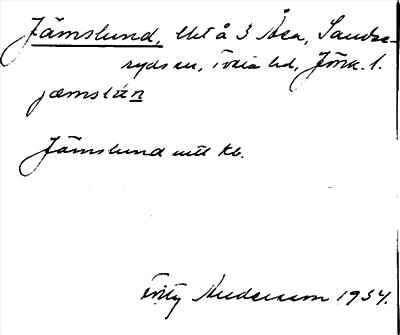 Jämslund, lht å 3 Åsa, Sandse-
ryds sn, Tveta hd, Jönk. l.
jæmslán
Jämslund uttl kb.
Fritz Andersson 1934.